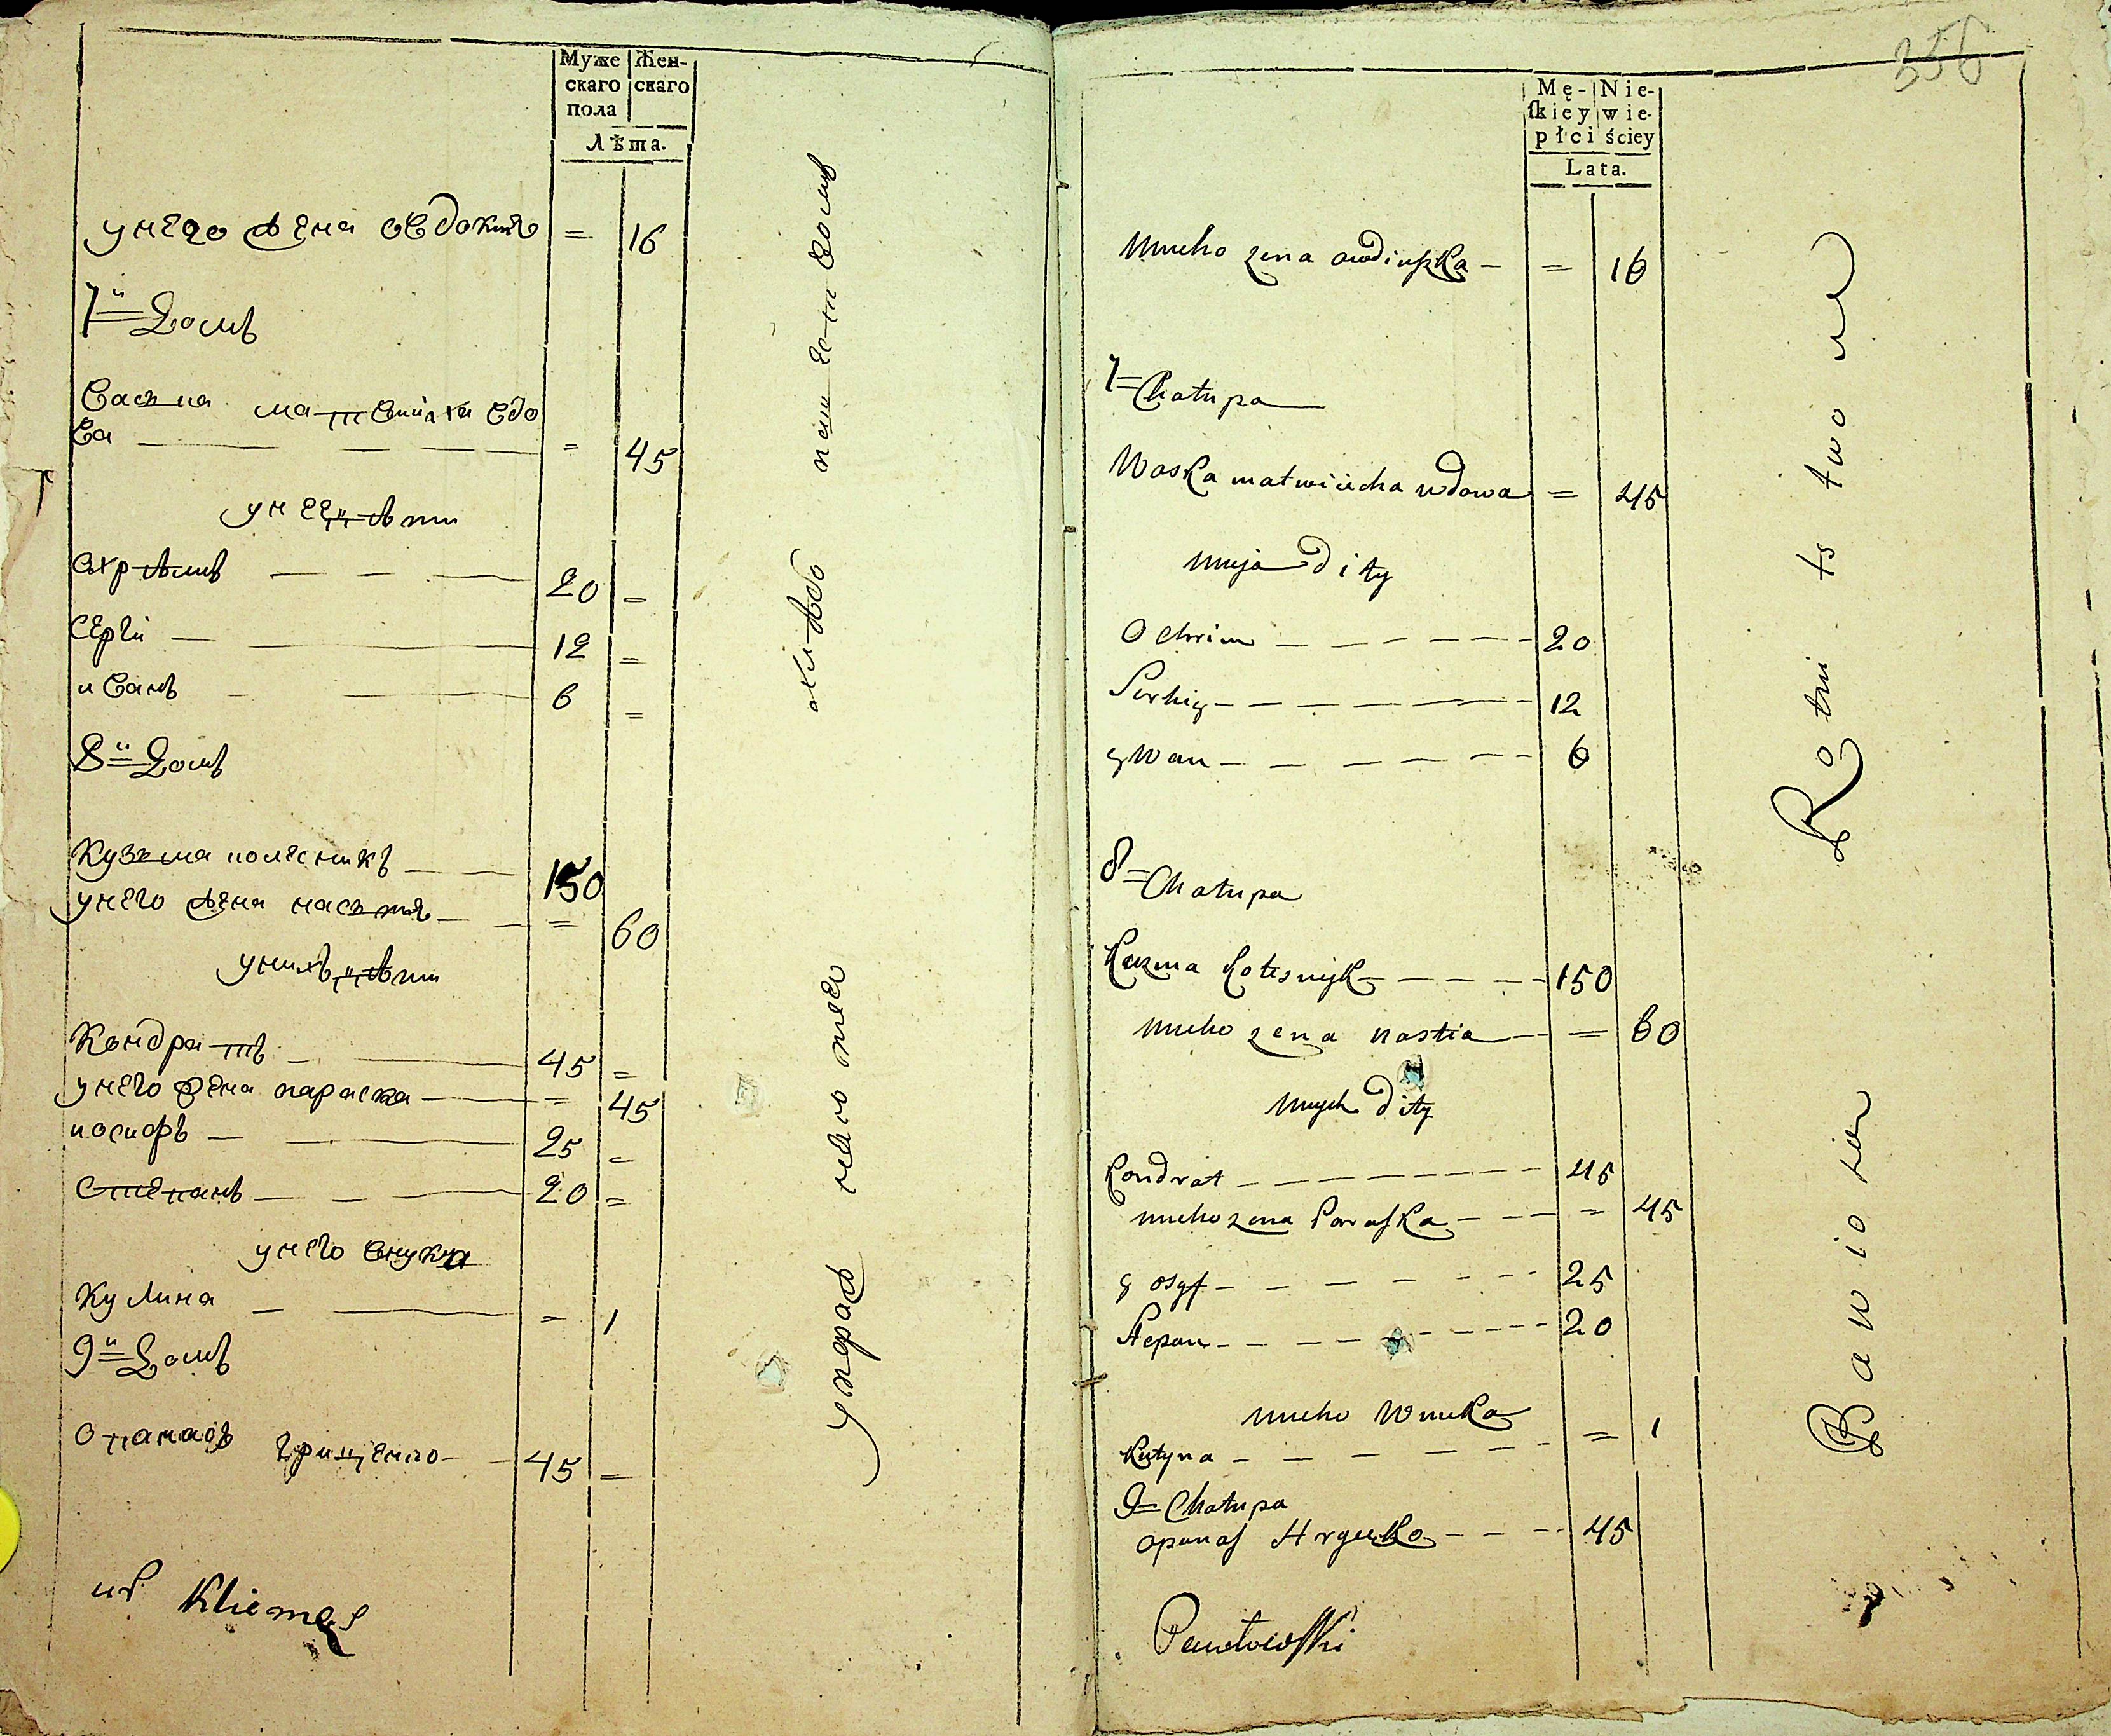 Муже
скаго
пола
Жен-
скаго
Лѣта.
унего жена овдокия = 16
7й Домъ
Васка матвииха вдо
ва = 45
унеи дѣти
охрѣмъ 20 =
Сергiй 12 =
иванъ 6 =
8й Домъ
Кузма колесникъ 150
унего жена настя = 60
унихъ дѣти
Кондратъ 45 =
унего жена параска = 45
иосифъ 25 =
Степанъ 20 =
унего внука
Кулина = 1
9й Домъ
Опанасъ Грищенко 45 =
356
Mę-
ſkiey
płci
Nie-
wie-
ściey
Lata.
Uneho żena owdiuszka = 16
7 = Chałupa
Waska matwiicha wdowa = 45
Uneja dity
Ochrim 20
Serhiy 12
ywan 6
8 = Chałupa
Kuzma Kołesnyk 150
Uneho żena nastia = 60
Unych dity
Kondrat 45
uneho żena Paraska = 45
yosyf 25
Stepan 20
uneho Wnuka = 1
Kułyna
9 = Chałupa
opanas Hryczko 45
Pawłowski